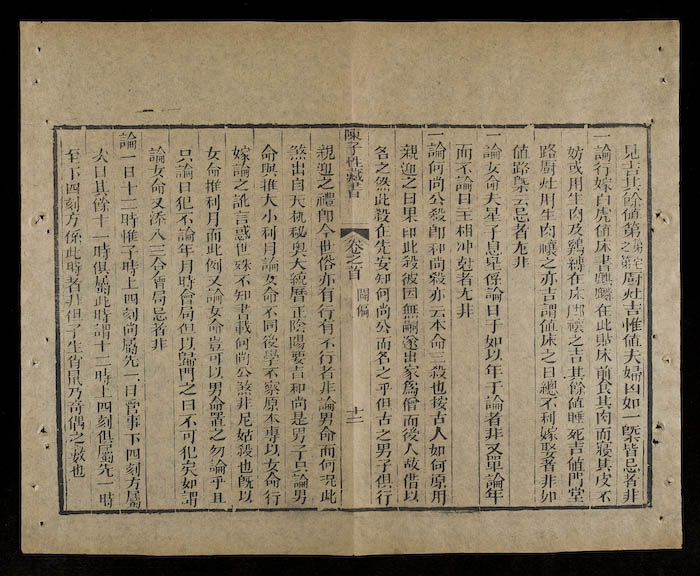 見吉其餘値第廚灶吉惟値夫婦凶如一槩皆忌者非
一論行嫁白虎値床書麒麟在此貼床前食其肉而寢其皮不
妨或用生肉及鷄縛在床脚禳之吉其餘値睡死吉値門堂
路廚灶用生肉禳之亦吉謂値床之日總不利嫁娶者非如
値路槩云忌者尢非
一論女命夫星子息星係論日于如以年于論者非又單論年
而不論日主相冲尅者尢非
一論何尚公殺卽和尚殺亦云本命三殺也按古人如何原用
親迎之日果卬此殺彼因無嗣遂出家爲僧而後人故借以
名之然此殺在先安知何尚公而名之乎但古之男子俱行
陳子性藏書
卷之首
闢僞
十二
親迎之禮卽今世俗亦有行有不行者非論男命而何况此
煞出自天机秘奥大統曆正陰陽要吉和尚是男子只論男
命與推大小利月論女命不同後學不察原本專以女命行
嫁論之訛言惑世殊不知書載何尚公煞非尼姑殺也旣以
女命推利月而此例又論女命豈可以男命置之勿論乎且
只論日犯不論年月時會局但以歸門之日不可犯矣如謂
論女命又忝八三合會局忌者非
論一日十二時惟子時上四刻尚屬先一日管事下四刻方屬
次日其餘十一時俱屬此時謂十二時上四刻俱屬先一時
至下四刻方係此時者非但子生肖鼠乃奇偶之数也